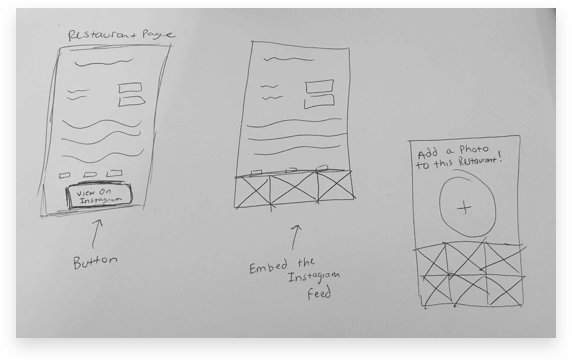 Restaurant Page
View On
Instagram
Button
Embed the
Instagram
Feed
Add a Photo
to this Restaurant!
+